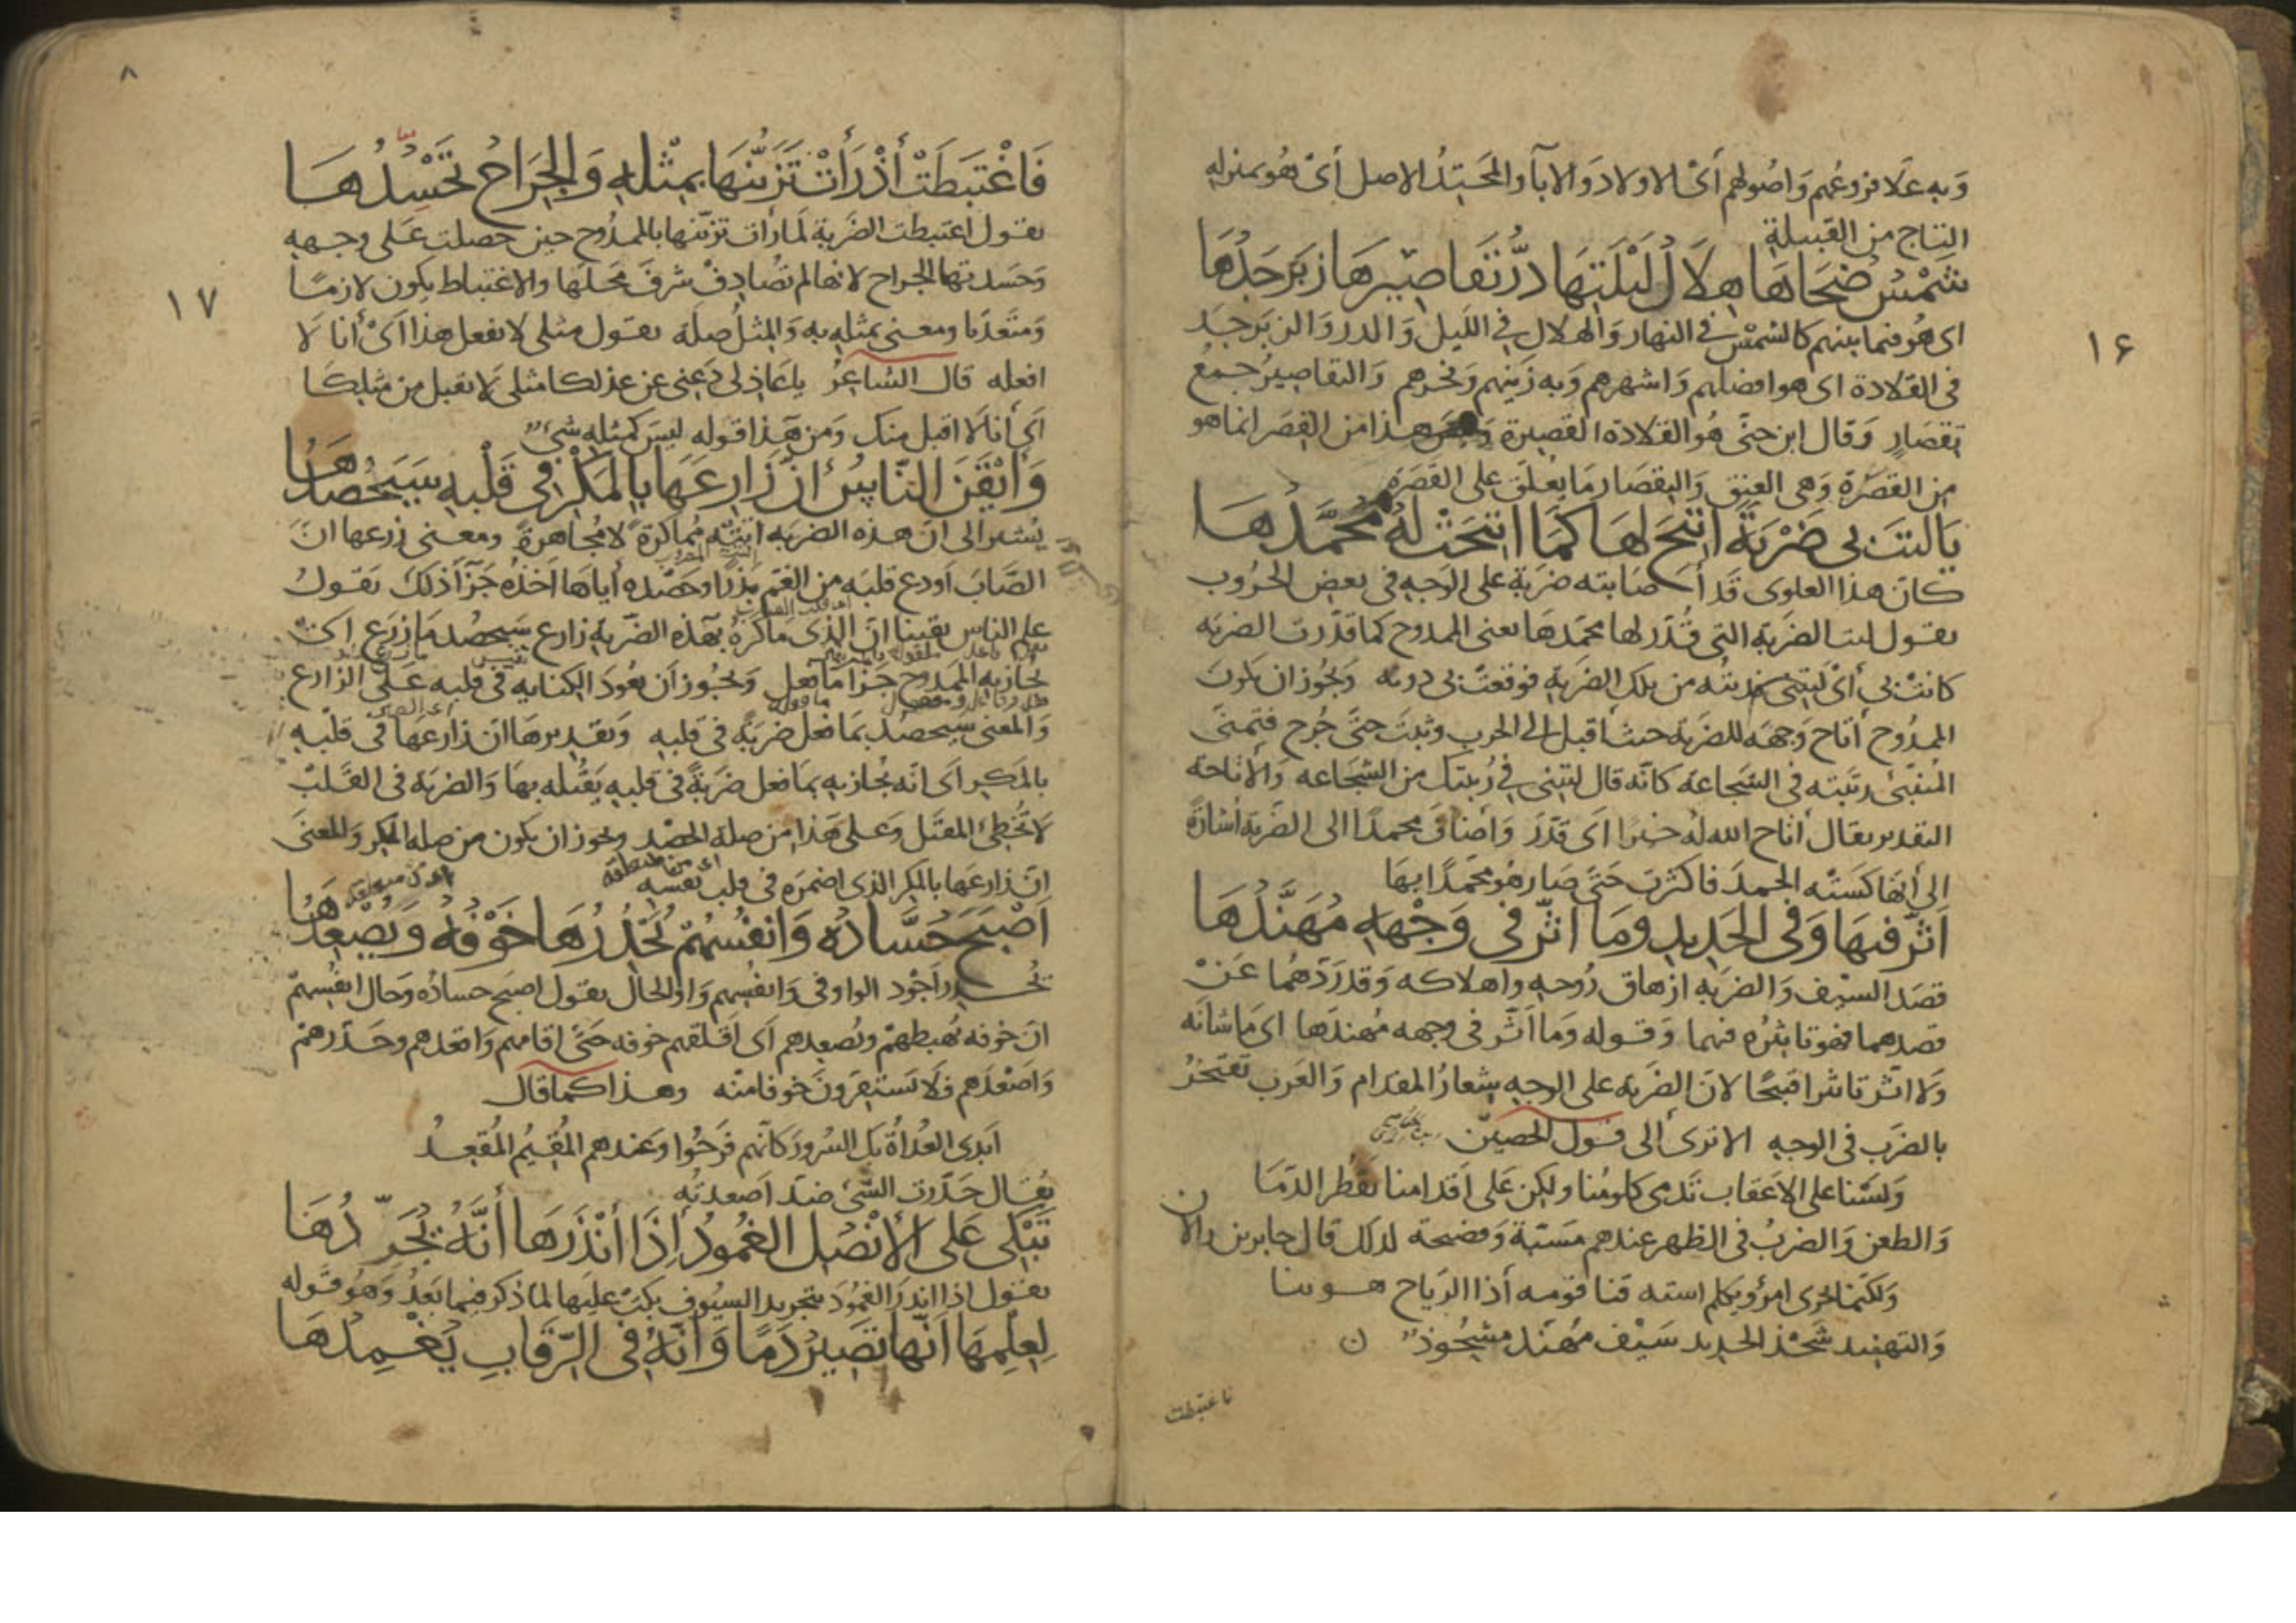 وَبِه عَلَا فروعهم وَاصُولهم أىْ الاولاد وَالابآ والمَحْتِدُ الاصل أىْ هُو بمنزله
التاج من القبيلة
شَمْسُ ضُحَاهَا هِلَالُ لَيْلَتِهَا دُرُّ تَقَاصِيرِهَا زَبَرْجَدُهَا
اى هُو فيما بينهم كالشمْس فى النهار وَالهلال فى الليل وَالدر وَالزبَرجَد
فى القلادة اى هو افضلهم وَاشهرهم وَبه زَينهم وَفخرهم وَالتقاصيرُ جمعُ
تقصَارٍ وَقال ابن جنّى هُو القلادة القصيرة وَليس هذا من القِصَر انما هو
من القصَرة وَهى العنق وَالتقصَار مَا يُعلق على القَصَرة
يَا لَيْتَ بِى ضَرْبَةً اُتِيحَ لهَا كَمَا اُتِيحَتْ لَهُ مُحَمَّدُهَا
كانَ هذا العلوى قَد أصَابته ضربَة على الوَجه فى بعض الحرُوب
يقول ليت الضربَة التى قُدّر لها محمّدهَا يعنى الممدوح كما قدّرت الضربَه
كانتْ بى أىْ ليتنى فديتُه من تلك الضربَة فوقعَتْ بى دونه وَيجُوز ان يكونَ
الممدُوح أتاح وَجهَه للضربَة حيث أقبل الى الحرب وثبتَ حتّى جُرح فتمنّى
المتنبّى رتبَته فى الشجاعة كانّه قال ليتنى فى رُتبتك من الشجَاعه وَالاتاحة
التقدير يقال أتاح الله لهُ خيرًا اى قَدّرَ وَاضافَ محمدًا الى الضّربَة اشارَة
الى أنها كَسَتْه الحمدَ فاكثرت حَتّى صَار هُو محمّدًا بهَا
اَثَّرَ فِيهَا وَفِى الْحَدِيدِ وَمَا اَثَّرَ فِى وَجْهِهِ مُهَنَّدُهَا
قصَدَ السّيف وَالضربَه ازهاق رُوحه واهلاكه وَقد رَدّهُما عَنْ
قصدهما فهو تاثيرُه فيهما وَقوله وَما اَثّر فى وجهه مُهندَها اى مَا شانَه
وَلا اثّر تاثيرا قبيحًا لانّ الضربَه على الوجه شِعارُ المقدام وَالعَرب تفتخرُ
بالضرَب فى الوجه الا ترى الى قول الحصين
وَلسْنا على الاعقاب تَدمى كلومُنا ولكن عَلى اقدامنا تقطُر الدّمَا
وَالطعن وَالضربُ فى الظهر عندهم مَسَبّة وَفضيحة لذلك قال جابر بن رالان
وَلكنما يخزى امرؤ يكلم استه قنا قومه أذا الرّياح هوينا
وَالتهنيد شَحْذ الحديد سَيْف مُهنّد مشحُوذ
فاغتبطت
١٦
٨
١٧
فَاغْتَبَطَتْ أذْ رَأَتْ تَزَيُّنَهَا بِمِثْلِهِ وَالْجِرَاحُ تَحْسُدُهَا
يقول اغتبطت الضَربة لمّا رأت تزيّنها بالممدُوح حين حصلت عَلى وجهه
وَحَسدتها الجراح لانها لم تُصَادف شرفَ مَحلّها والاغتباط يكون لازمًا
وَمتعدّيا ومعنى بمثله به وَالمثلُ صلة يقول مثلى لا يفعل هذا اَىْ أنا لا
افعله قال الشاعِرُ يا عَاذلى دَعنى عن عذلكا مثلى لا يقبل من مثلِكا
اَىْ أنا لَا اقبل منك وَمن هَذا قوله ليسَ كمثلِه شىءٌ
وَأَيْقَنَ النَّاسُ أنَّ زَارِعَهَا بِالْمَكْرِ فِى قَلْبِهِ سَيَحْصُدُهَا
يُشير الى انّ هذه الضربَه اتتْه مُماكرة لا مُجاهرةً ومعنى زرعها انّ
الضّاربَ اَودع قلبَه من الغم بَذرًا وحَصْده أياها اَخذُه جَزآ ذلكَ يَقولُ
علم الناس يقينا انّ الذى ماكرَهُ بهذه الضّربَة زارع سَيَحصُد مَا زرَع اىْ
يُجازيه الممدوح جَزا مَا فعل وَيجُوز اَن يعُودَ الكنايه فى قلبه عَلى الزارع
وَالمعنى سيَحصدُ بمَا فعل ضربَةً فى قلبه وَتقديرهَا ان زارعهَا فى قلبْه
بالمَكر اى انّه يُجازيه بمَا فعل ضربَةً فى قلبه يَقتُله بهَا وَالضربَة فى القَلبْ
لا تُخطئ المقتَل وَعلى هَذا من صلة الحصْد ويجوز ان يكون من صله المكر وَالمعنى
انّ زارعهَا بالمكر الذى اضمرَه فى قلب نفسه
اَصْبَحَ حُسَّادُهُ وَانْفُسُهُمْ يُحْدِرُهَا خَوْفُهُ وَيُصْعِدُهَا
يُحدر أجْود الواو فى وَانفُسِهم وَاو الحال يقول اصبَح حسادُه وَحال انفُسِهمْ
انّ خوفه يُهبطهمْ ويُصعِدهم اَى اَقلقهم خوفه حَتّى اقامهم وَاقعدهم وحَدّرهمْ
وَاصْعَدهم فلَا يَستقِرّونَ خوفا منْه وهذا كما قال
اَبدى العُداةُ بك السُرورَ كانّهم فرَحُوا وَعندهم المُقيمُ المُقعِدُ
يُقال حَدّرتُ الشّىءَ ضدّ اَصعدتُه
تَبْكِى عَلَى الْأَنْصُلِ الْغُمُودُ إذَا أَنْذَرَهَا أَنَّهُ يُجَرِّدُهَا
يقول اذا انذر الغمُودَ بتجريد السيُوف بكَت عليهَا لما ذكر فيما بَعدُ وَهو قوله
لِعِلْمِهَا اَنَّهَا تَصِيرُ دَمًا وَأَنَّهُ فِى الرِّقَابِ يُغْمِدُهَا